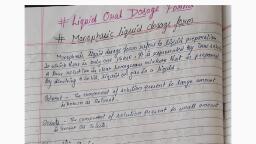 # Liquid Oral Dosage Forms
# Monophasic liquid dosage form
Monophasic liquid dosage form refers to liquid preparation
in which there is only one phase. It is represented by true solution
A true solution is clear homogenous mixture that is prepared
by dissolving a solid, liquid or gas in a liquid.
Solvent - The component of solution present in large amount
is known as Solvent.
Solute - The component of solution present in small amount
is known as Solute.